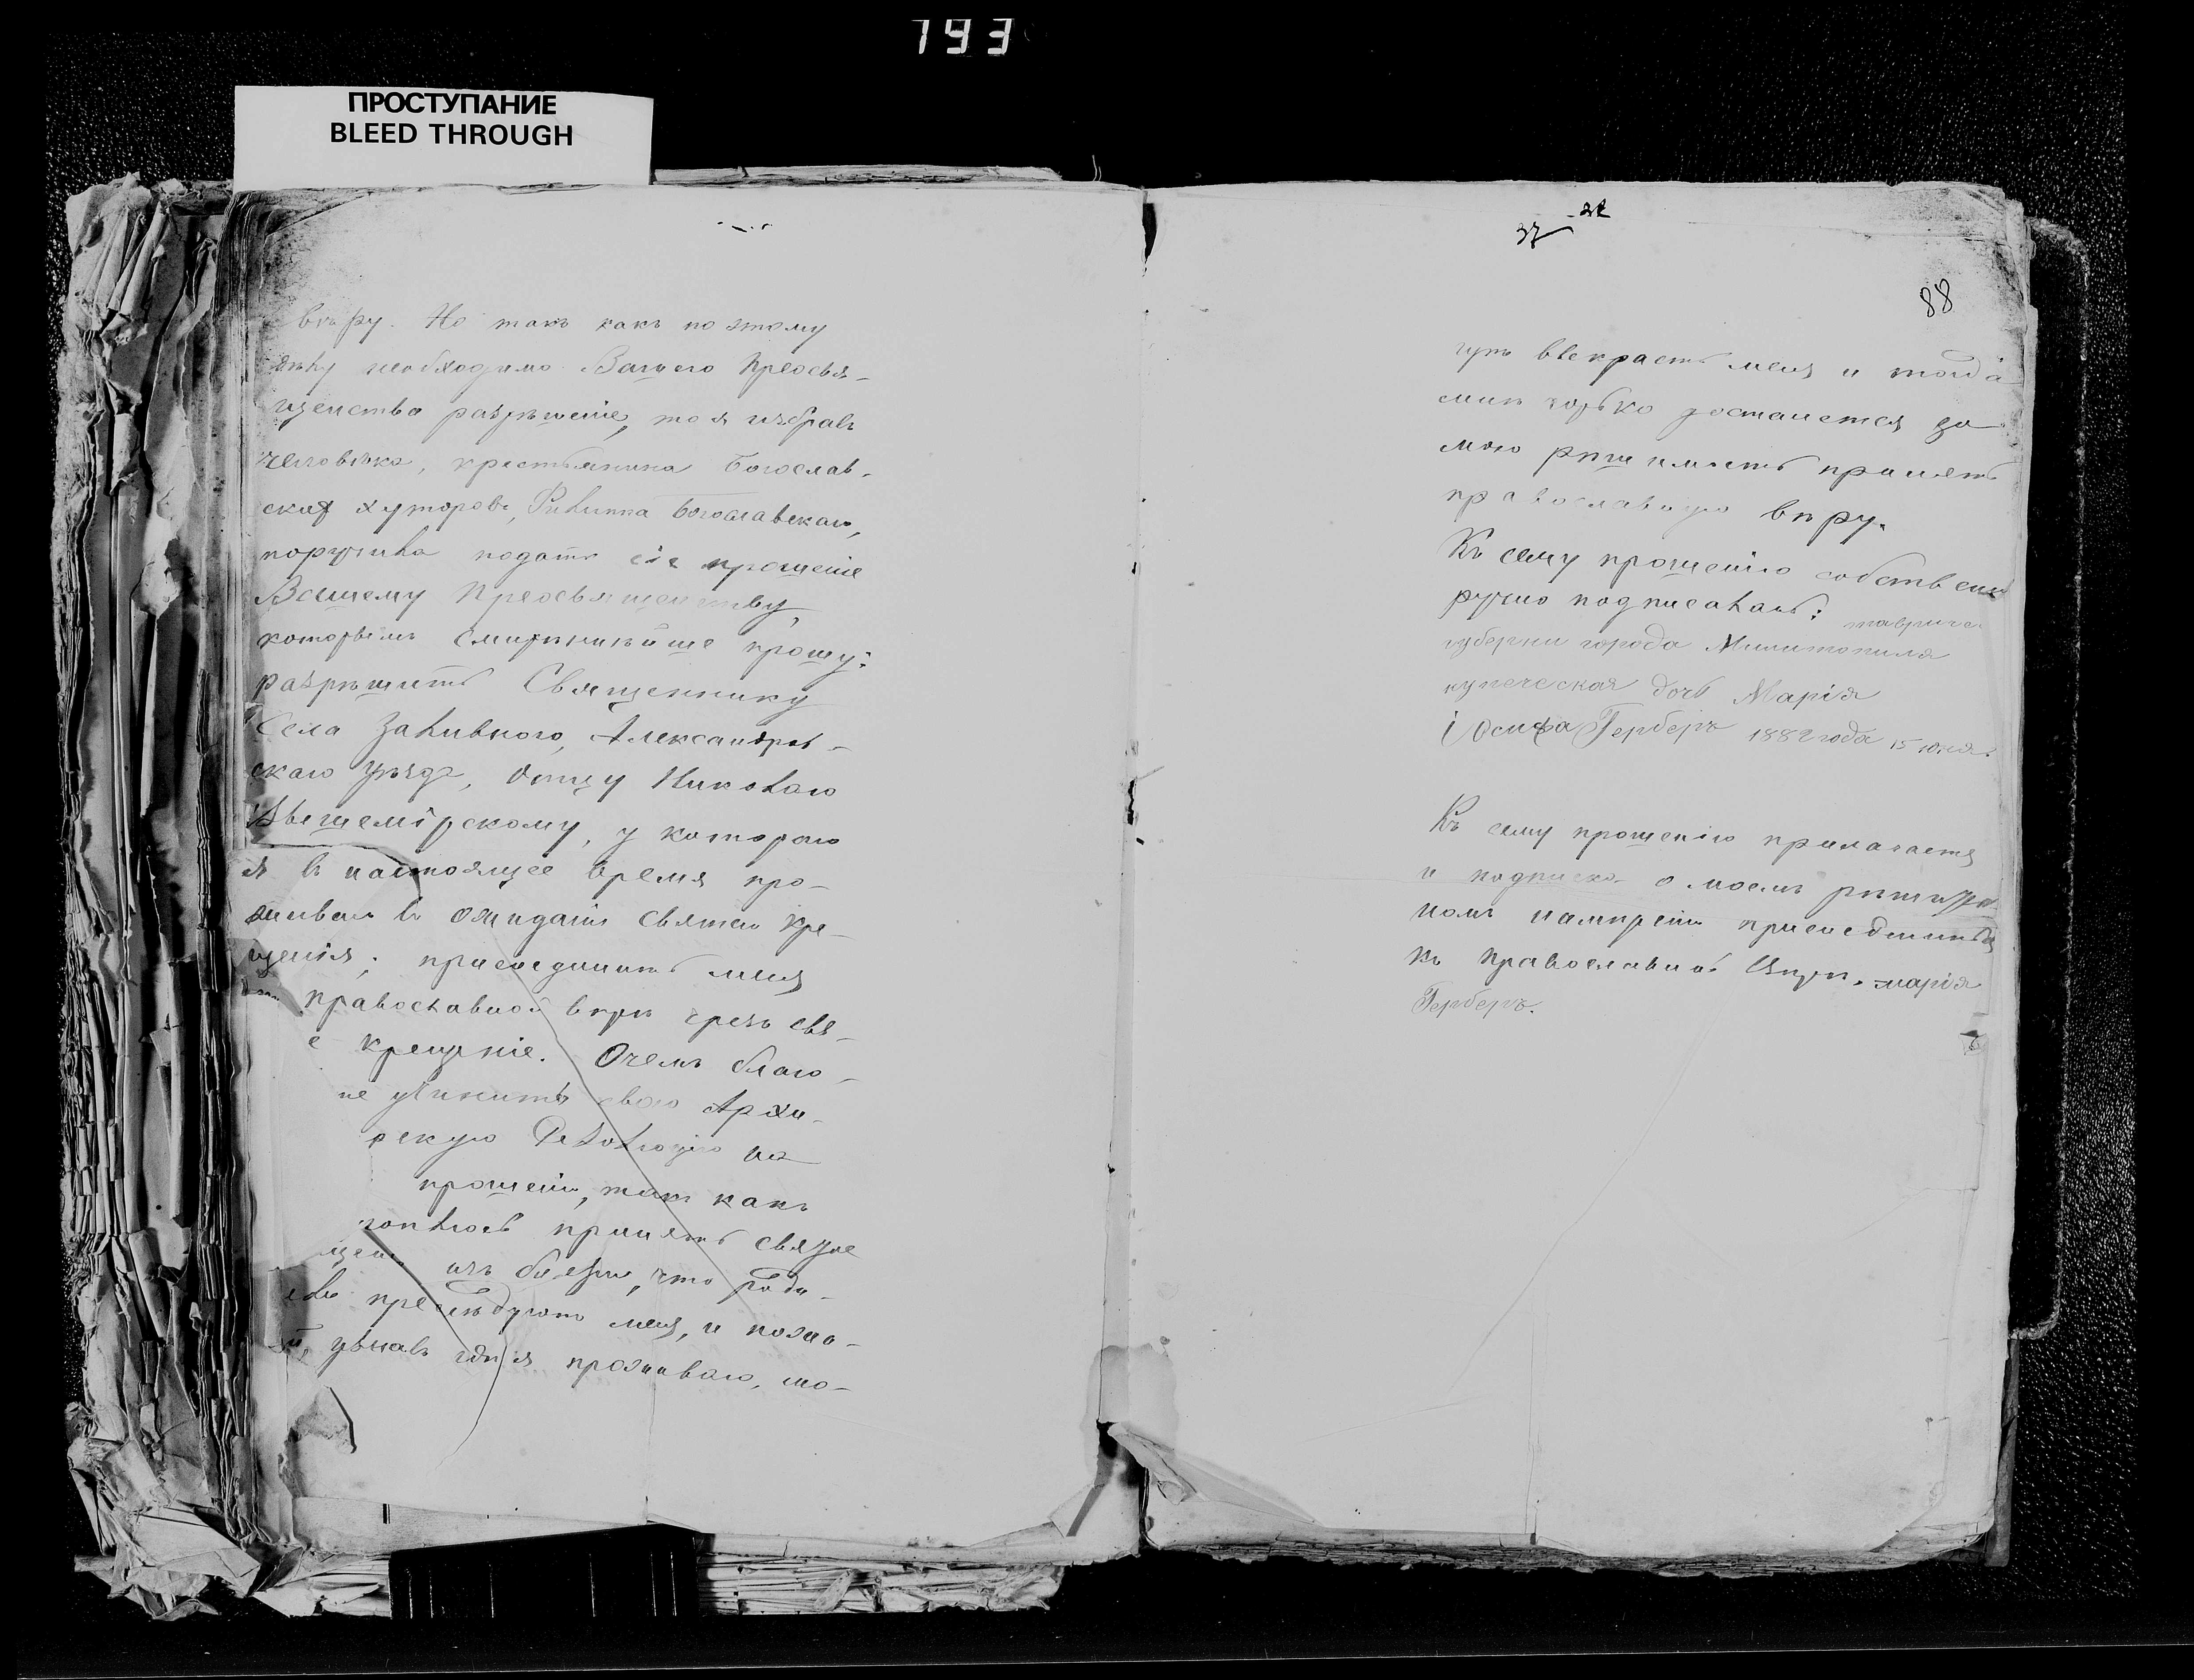 793
ПРОСТУПАНИЕ
BLEED THROUGH
вѣру. Но такъ какъ по этому
необходимо Вашего Преосвя-
щенства разрѣшеніе, то я избравъ
человѣка, крестьянина Богослав-
скихъ хуторовъ, Филиппа Богославскаго,
поручила подать сіе прошеніе
Вашему Преосвященству,
которымъ смиреннѣйше прошу:
разрѣшить Священнику
Села Заливного, Александров-
скаго уѣзда, Отцу Николаю
у котораго
я въ настоящее время про-
живаю въ ожиданіи Святаго Кре-
щенія; присоединить меня
православной вѣрѣ чрезъ свя-
е крещеніе. Очемъ благо-
не учинить свою Архи-
скую Резолюцію на
прошеніи, такъ какъ
принять святое
изъ боязни, что роди-
преслѣдуютъ меня, и позна-
узнавъ гдѣ я проживаю, мо-
37
88
гутъ выкрасть меня и тогда
мнѣ горько достанется за
мою рѣшимость принять
православную вѣру.
Къ сему прошенію собственно
ручно подписалась: тавриче
губерни города Милитопиля
купеческая дочь Марія
іосифа Герберъ 1882 года 15 юня.
Къ сему прошенію прилагается
и подписка о моемъ рѣшитель
номъ намѣреніи присоединиться
къ православной Церкви. марія
Герберъ.